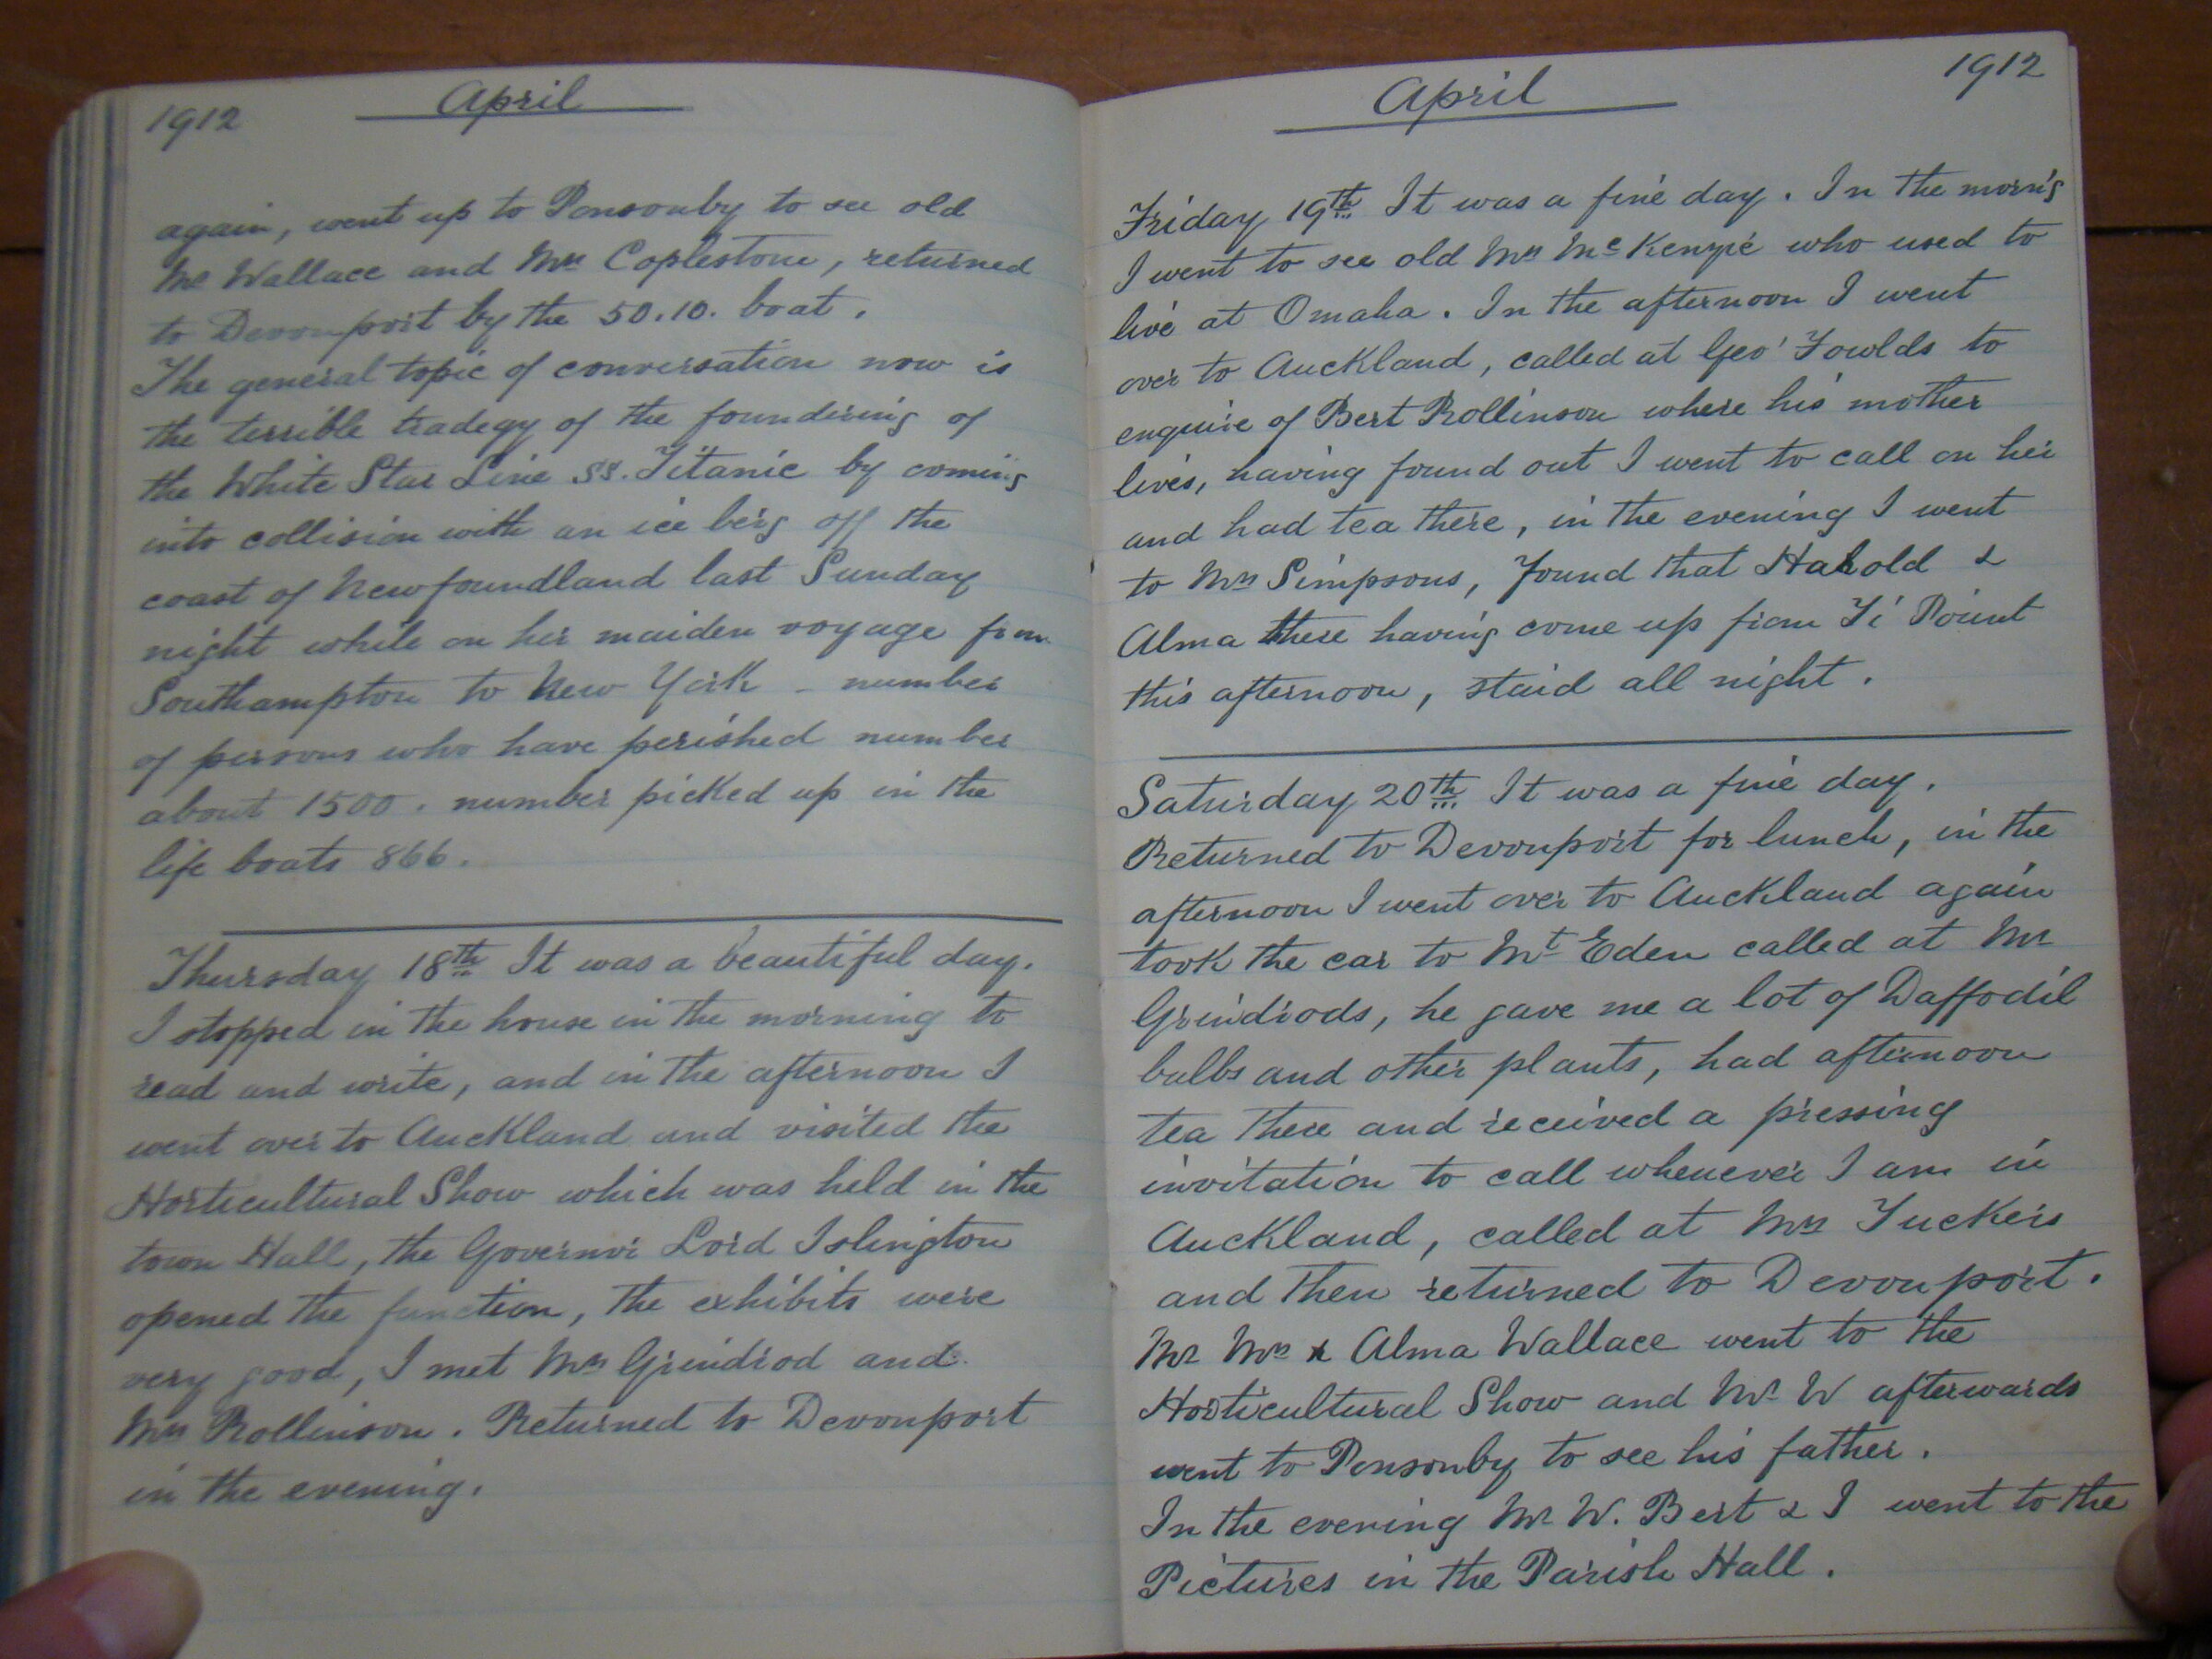 1912 April
again, went up to Ponsonby to see old
Mr Wallace and Mrs Coplestone, returned
to Devonport by the 50.10. boat.
The general topic of conversation now is
the terrible tradegy of the foundering of
the White Star Line SS. Titanic by coming
into collision with an ice berg off the
coast of Newfoundland last Sunday
night while on her maiden voyage from
Southampton to New York - number
of persons who have perished number
about 1500. number picked up in the
life boats 866.
Thursday 18th It was a beautiful day.
I stopped in the house in the morning to
read and write, and in the afternoon I
went over to Auckland and visited the
Horticultural Show which was held in the
town Hall, the Governor Lord Islington
opened the function, the exhibits were
very good, I met Mrs Grindrod and
Mrs Rollinson. Returned to Devonport
in the evening.
April 1912
Friday 19th It was a fine day. In the morn'g
I went to see old Mrs McKenzie who used to
live at Omaha. In the afternoon I went
over to Auckland, called at Geo' Fowlds to
enquire of Bert Rollinson where his mother
lives, having found out I went to call on her
and had tea there, in the evening I went
to Mrs Simpsons, found that Harold &
Alma there having come up from Ti Point
this afternoon, staid all night.
Saturday 20th It was a fine day.
Returned to Devonport for lunch, in the
afternoon I went over to Auckland again
took the car to Mt Eden called at Mr
Grindrods, he gave me a lot of Daffodil
bulbs and other plants, had afternoon
tea there and received a pressing
invitation to call whenever I am in
Auckland, called at Mrs Tuckers
and then returned to Devonport.
Mr Mrs & Alma Wallace went to the
Horticultural Show and Mr W afterwards
went to Ponsonby to see his father.
In the evening Mr W. Bert & I went to the
Pictures in the Parish Hall.